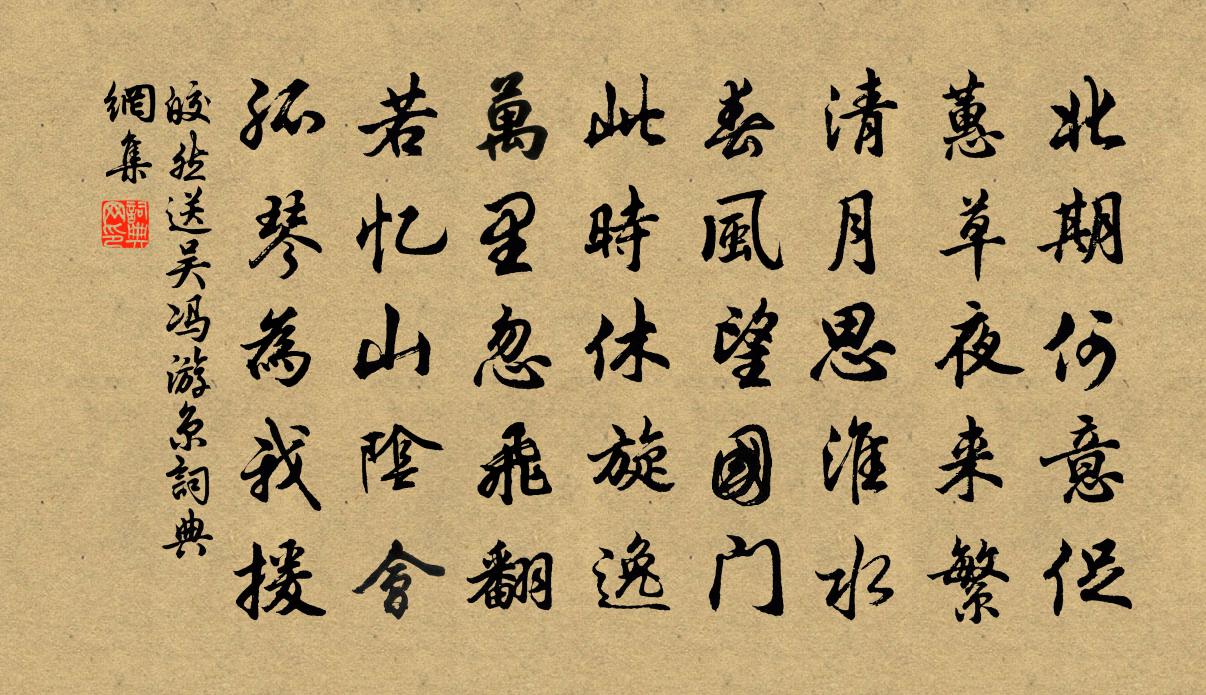 北期何意促
蕙草夜来繁
清月思淮水
春風望國门
此時休旋逸
萬里忽飛翻
若忆山陰會
孤琴為我援
皎然送吴冯游京詞典
網集
詞典网印